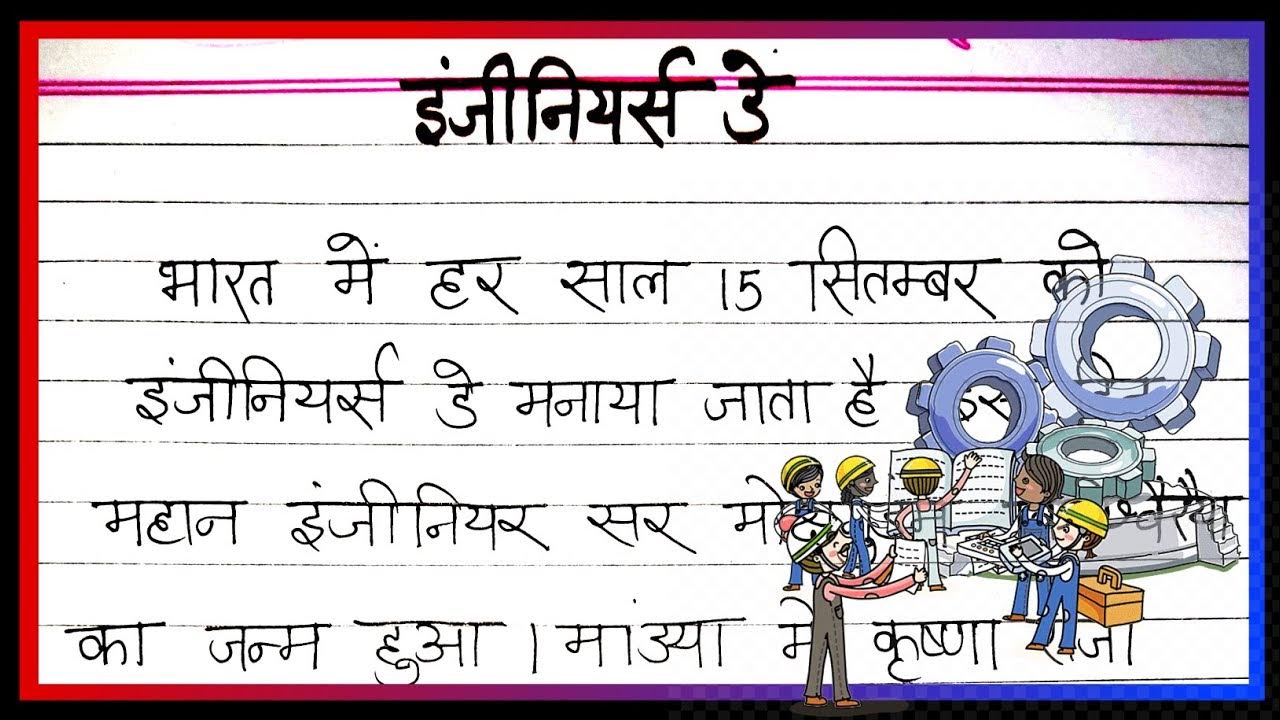 इंजीनियर्स डे
भारत में हर साल 15 सितम्बर को
इंजीनियर्स डे मनाया जाता है इस
महान इंजीनियर सर
का जन्म हुआ । मांडया में कृष्णा